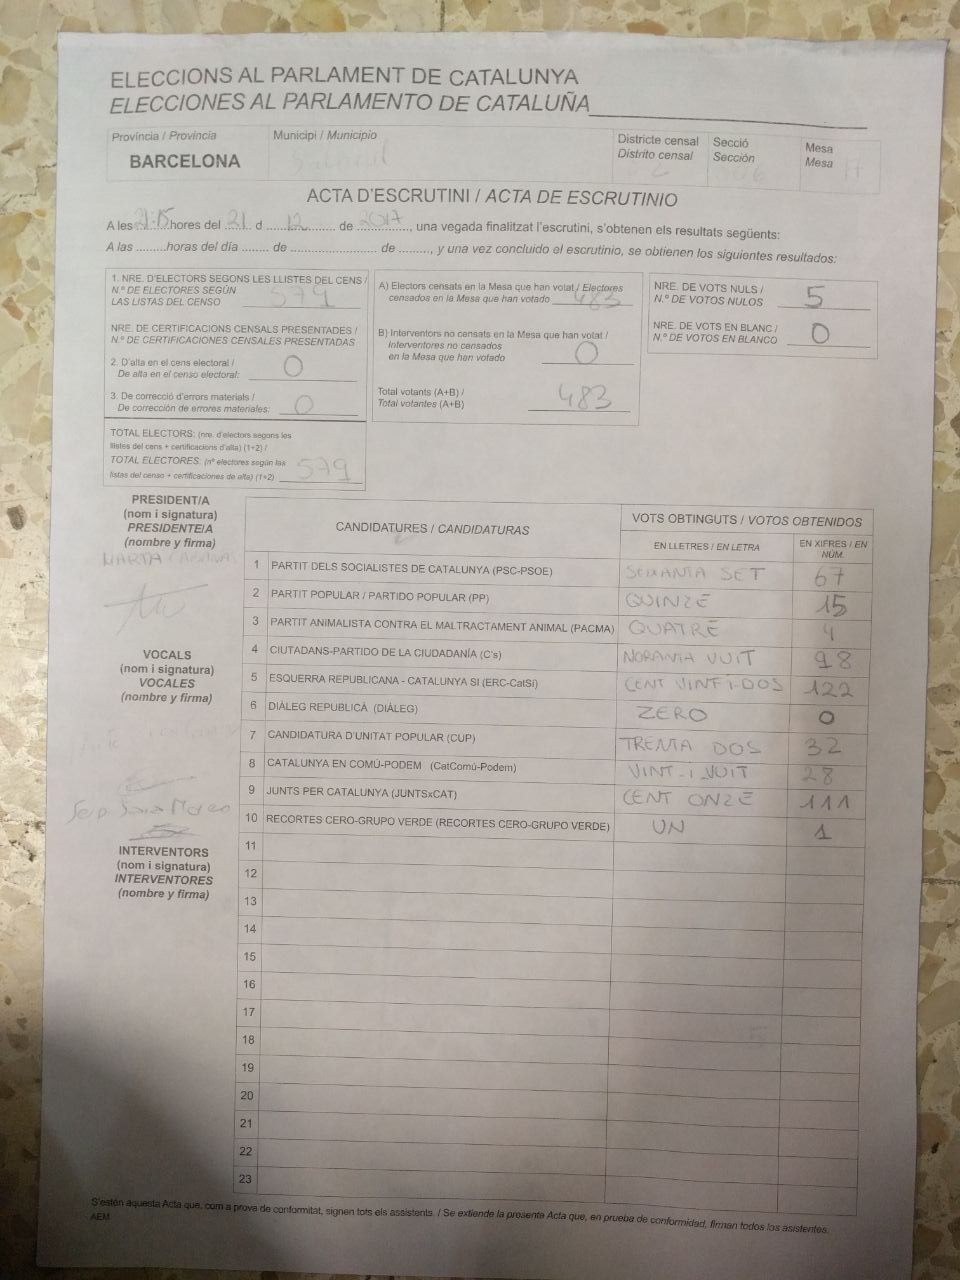 ELECCIONS AL PARLAMENT DE CATALUNYA
ELECCIONES AL PARLAMENTO DE CATALUÑA
Província / Provincia
BARCELONA
Municipi / Municipio
Districte censal
Distrito censal
Secció
Sección
Mesa
Mesa
ACTA D'ESCRUTINI / ACTA DE ESCRUTINIO
A les 21:15 hores del 21 d 12 de 2017, una vegada finalitzat l'escrutini, s'obtenen els resultats següents:
A las .........horas del día ........ de ........................ de ........., y una vez concluido el escrutinio, se obtienen los siguientes resultados:
1. NRE. D'ELECTORS SEGONS LES LLISTES DEL CENS /
N.º DE ELECTORES SEGÚN
LAS LISTAS DEL CENSO 579
NRE. DE CERTIFICACIONS CENSALS PRESENTADES /
N.º DE CERTIFICACIONES CENSALES PRESENTADAS
2. D'alta en el cens electoral /
De alta en el censo electoral: 0
3. De correcció d'errors materials /
De corrección de errores materiales: 0
TOTAL ELECTORS: (nre. d'electors segons les
llistes del cens + certificacions d'alta) (1+2) /
TOTAL ELECTORES: (nº electores según las
listas del censo + certificaciones de alta) (1+2) 579
A) Electors censats en la Mesa que han votat / Electores
censados en la Mesa que han votado 483
B) Interventors no censats en la Mesa que han votat /
Interventores no censados
en la Mesa que han votado 0
Total votants (A+B) /
Total votantes (A+B) 483
NRE. DE VOTS NULS /
N.º DE VOTOS NULOS 5
NRE. DE VOTS EN BLANC /
N.º DE VOTOS EN BLANCO 0
PRESIDENT/A
(nom i signatura)
PRESIDENTE/A
(nombre y firma)
MARTA
VOCALS
(nom i signatura)
VOCALES
(nombre y firma)
INTERVENTORS
(nom i signatura)
INTERVENTORES
(nombre y firma)
CANDIDATURES / CANDIDATURAS
VOTS OBTINGUTS / VOTOS OBTENIDOS
EN LLETRES / EN LETRA
EN XIFRES / EN NÚM.
1 PARTIT DELS SOCIALISTES DE CATALUNYA (PSC-PSOE) SEIXANTA SET 67
2 PARTIT POPULAR / PARTIDO POPULAR (PP) QUINZE 15
3 PARTIT ANIMALISTA CONTRA EL MALTRACTAMENT ANIMAL (PACMA) QUATRE 4
4 CIUTADANS-PARTIDO DE LA CIUDADANÍA (C's) NORANTA VUIT 98
5 ESQUERRA REPUBLICANA - CATALUNYA SÍ (ERC-CatSí) CENT VINT-I-DOS 122
6 DIÀLEG REPUBLICÀ (DIÀLEG) ZERO 0
7 CANDIDATURA D'UNITAT POPULAR (CUP) TRENTA DOS 32
8 CATALUNYA EN COMÚ-PODEM (CatComú-Podem) VINT-I-VUIT 28
9 JUNTS PER CATALUNYA (JUNTSxCAT) CENT ONZE 111
10 RECORTES CERO-GRUPO VERDE (RECORTES CERO-GRUPO VERDE) UN 1
11
12
13
14
15
16
17
18
19
20
21
22
23
S'estén aquesta Acta que, com a prova de conformitat, signen tots els assistents. / Se extiende la presente Acta que, en prueba de conformidad, firman todos los asistentes.
AEM